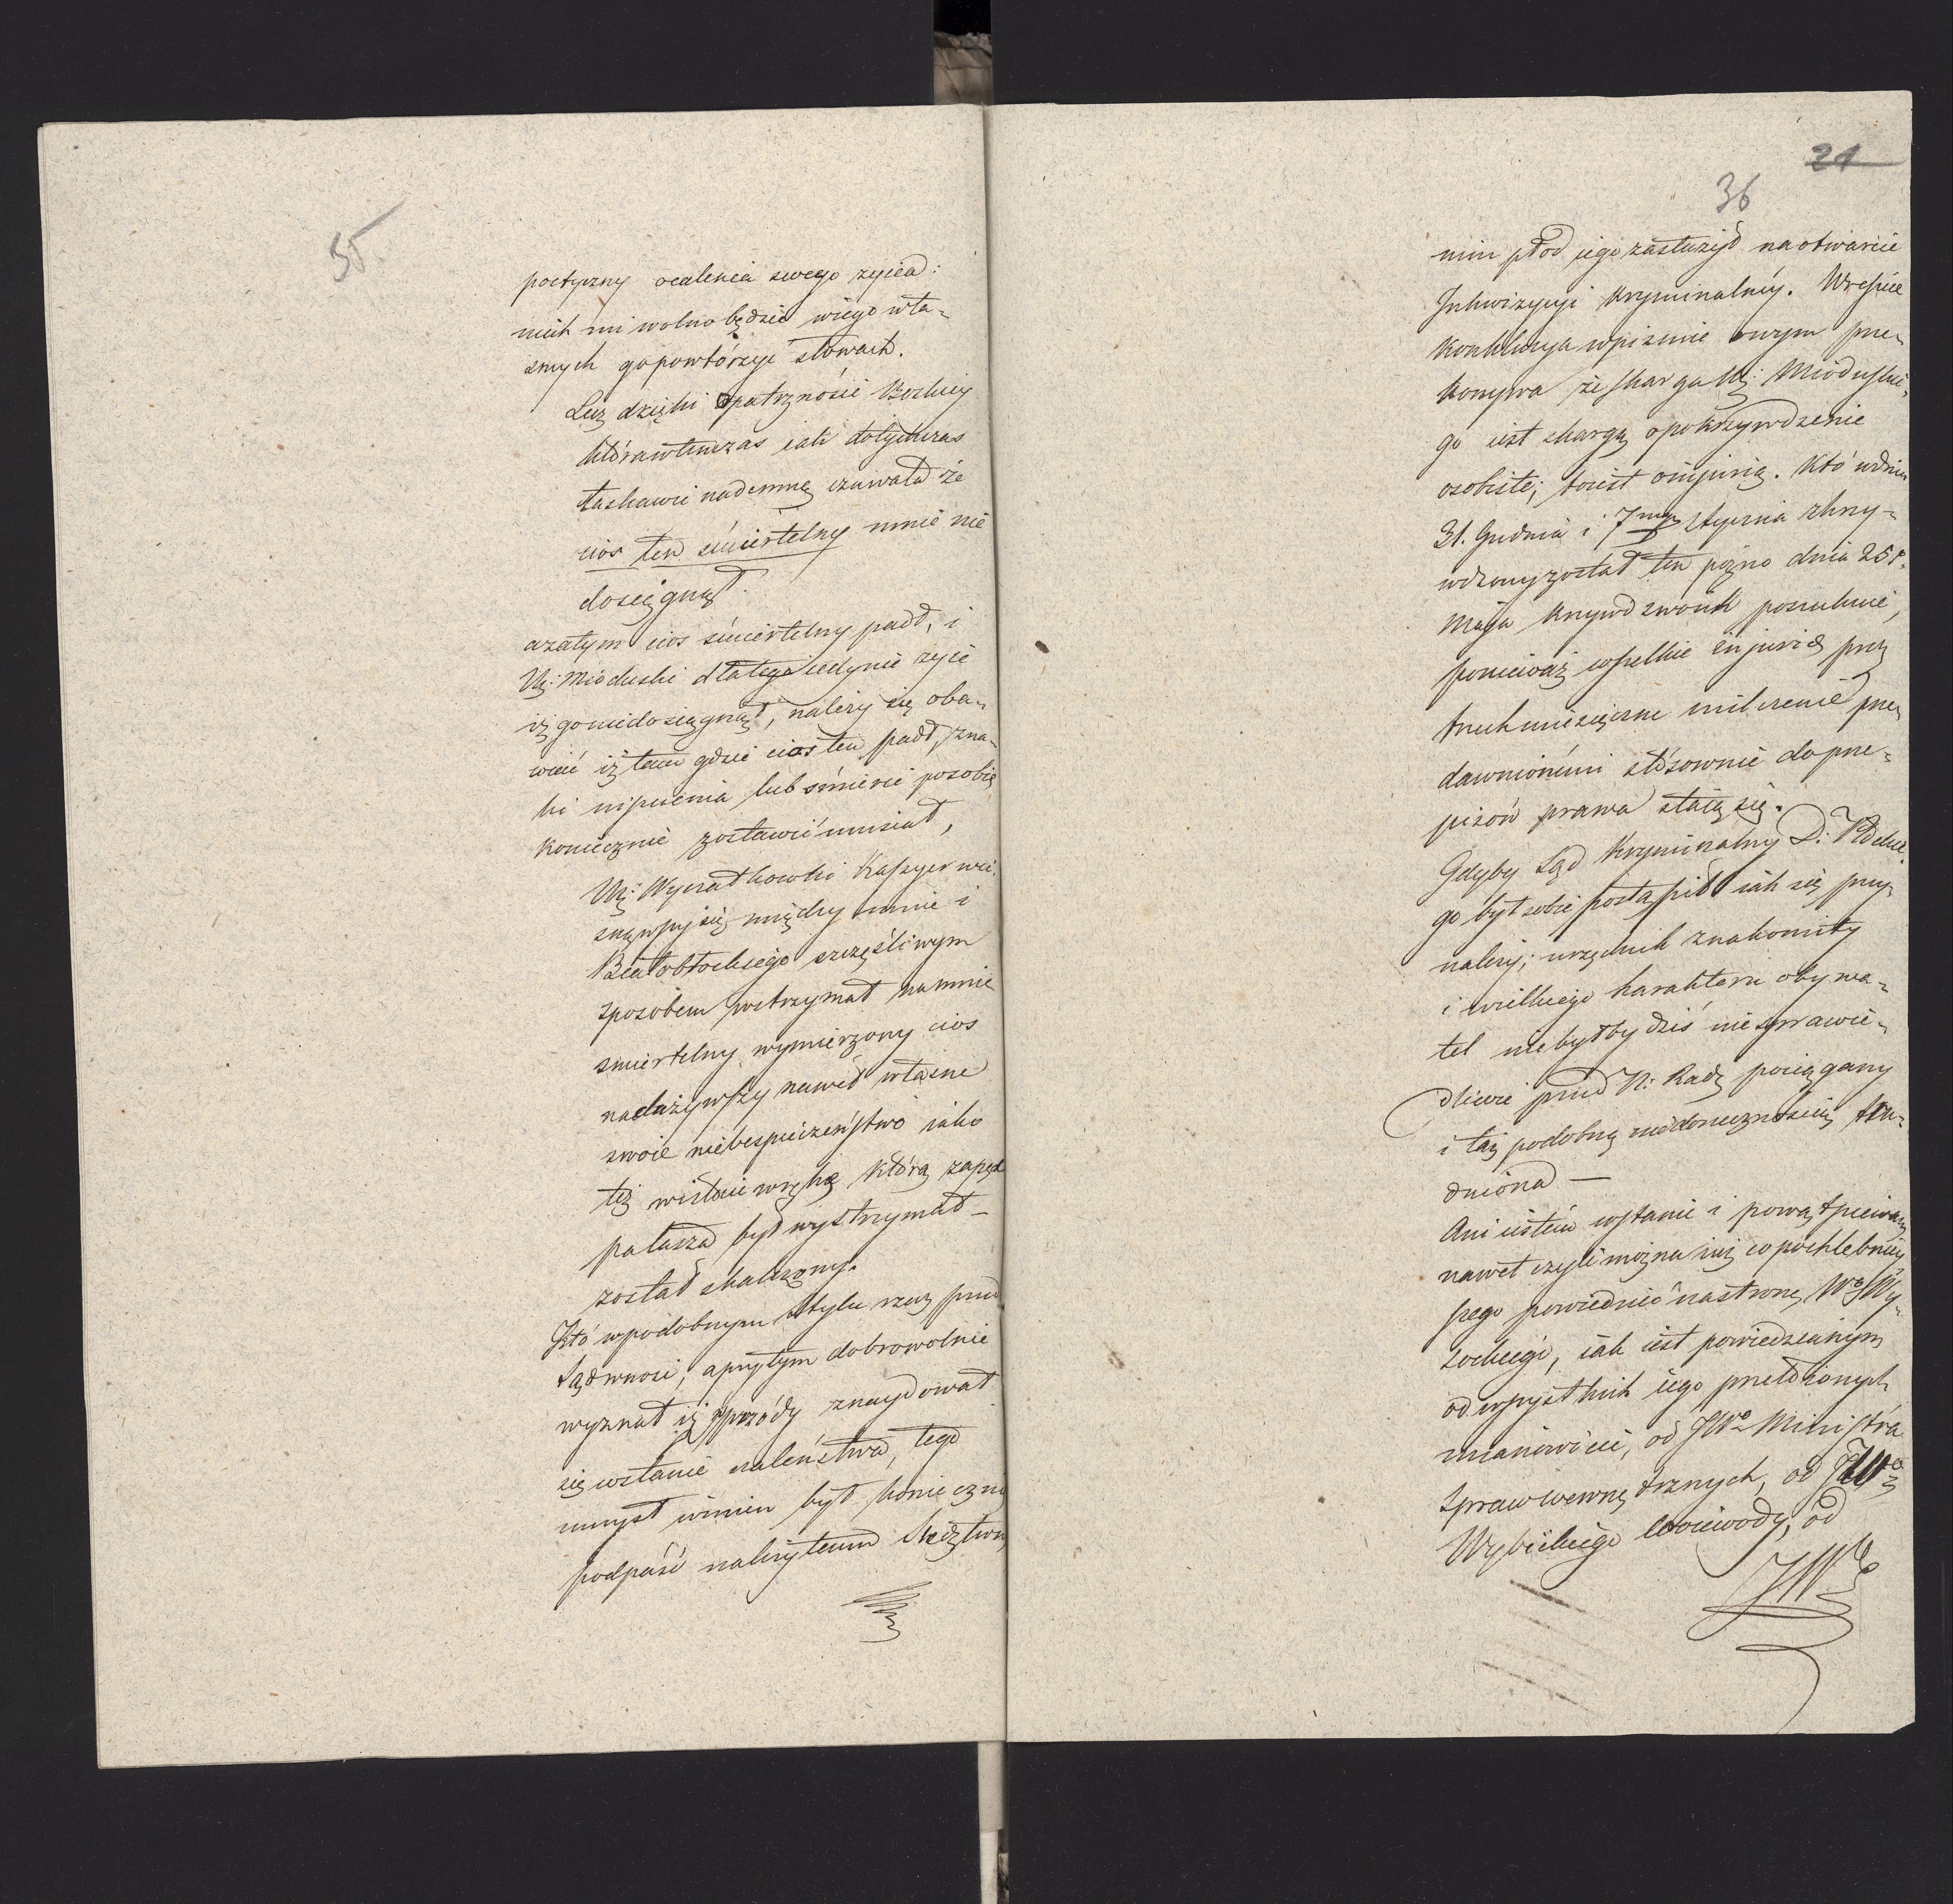 35
poetyczny ocalenia swego zycia:
niech mi wolno będzie wiego wła=
snych go powtórzyc słowach.
Lecz dzięki Opatrznosci Bozkiey
którawtenczas iak dotychczas
łaskawie nademną czuwała że
cios ten śmiertelny mnie nie
dosięgnął.
azatym cios śmiertelny padł, i
Wy: Mioduski dlatego iedynie zyie
iż goniedosięgnął, nalezy się oba=
wiać iż tam gdzie cios ten padł, zna=
ki nisczenia lub śmierci posobie
koniecznie zostawić musiał,
Wy: Wyczałkowski Kassyer wci=
snąwszy się między mnie i
Białobłockiego szczęśliwym
sposobem wstrzymał na mnie
smiertelny wymierzony cios
nadużywszy nawet własne
swoie niebespieczeństwo iako
też wistocie wrękę którą zapęd
pałasza był wystrzymał –
został skaleczony.
Kto wpodobnym stylu rzecz przed
Sąd wnosi, aprzytym dobrowolnie
wyznał iż wprzódy znaydował
się wstanie szaleństwa, tego
umysł winien był koniecznie
podpaść należytemu Śledztwu,
21
36
nim płod iego zasłużył na otwarcie
Inkwizycyi kryminalney. Wreszcie
konkluzya wpismie swym prze=
konywa że skarga Wy: Mioduskie=
go iest skargą opokrzywdzenie
osobiste; toiest oinjurią. Kto wdniu
31. Grudnia i 7mym stycznia skrzy=
wdzony został ten pozno dnia 25º
Maja krzywd swoich poszukuie,
ponieważ wszelkie injurie przez
trzechmiesięczne milczenie prze=
dawnionemi stosownie do prze=
pisów prawa staią się.
Gdyby Sąd Kryminalny D: Płockie=
go był sobie postąpił iak się przy=
należy; urzędnik znakomity
i wielkiego harakteru obywa=
tel niebyłby dziś niesprawie=
dliwie przed N: Radę pociągany
i taż podobną niedorzecznością tru=
dniona —
Ani iestem wstanie i powątpiewam
nawet czyli można iuż co pochlebniey=
szego powiedzieć nastronę Wgo Wy=
sockiego, iak iest powiedzianym
od wszystkich iego przełożonych
mianowicie, od JWo Ministra
Spraw wewnętrznych, od JWo
Wybickiego Woiewody, od
JWo